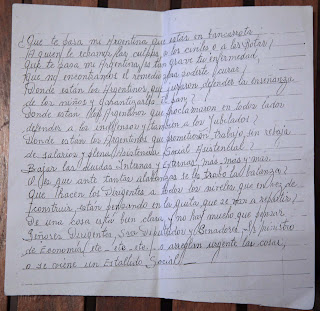 ¿Que te pasa mi Argentina que estas en bancarrota
A quien le echamos las culpas, a los civiles o a las Botas/
Que te pasa mi Argentina/es tan grave tu enfermedad,
Que no encontramos el remedio para poderte/curar/
Donde estan los Argentinos que juraron defender la enseñanza
de los niños y garantizarles el pan?
Donde estan/los Argentinos que proclamaron en todos lados
defender a los indefensos y tambien a los Jubilados?
Donde estan los Argentinos que prometieron trabajo, sin rebaja
de salarios y plena/Asistencia Social Asistencial?
Bajar las deudas Internas y Externas, mas, mas y mas.
O/es que ante tantas alabanzas se les trabo la/balanza/
Que hacen los Dirigentes a todos los niveles que en vez de
/construir, estan pensando en la guita que se van a repartir/
De una cosa estoy bien clara, y no hay mucho que pensar
Señores Dirigentes, Sres Diputados y Senadores, Sr ministro
de Economia/etc - etc - etc/. o arreglan urgente las cosas,
o se viene un Estallido Social/